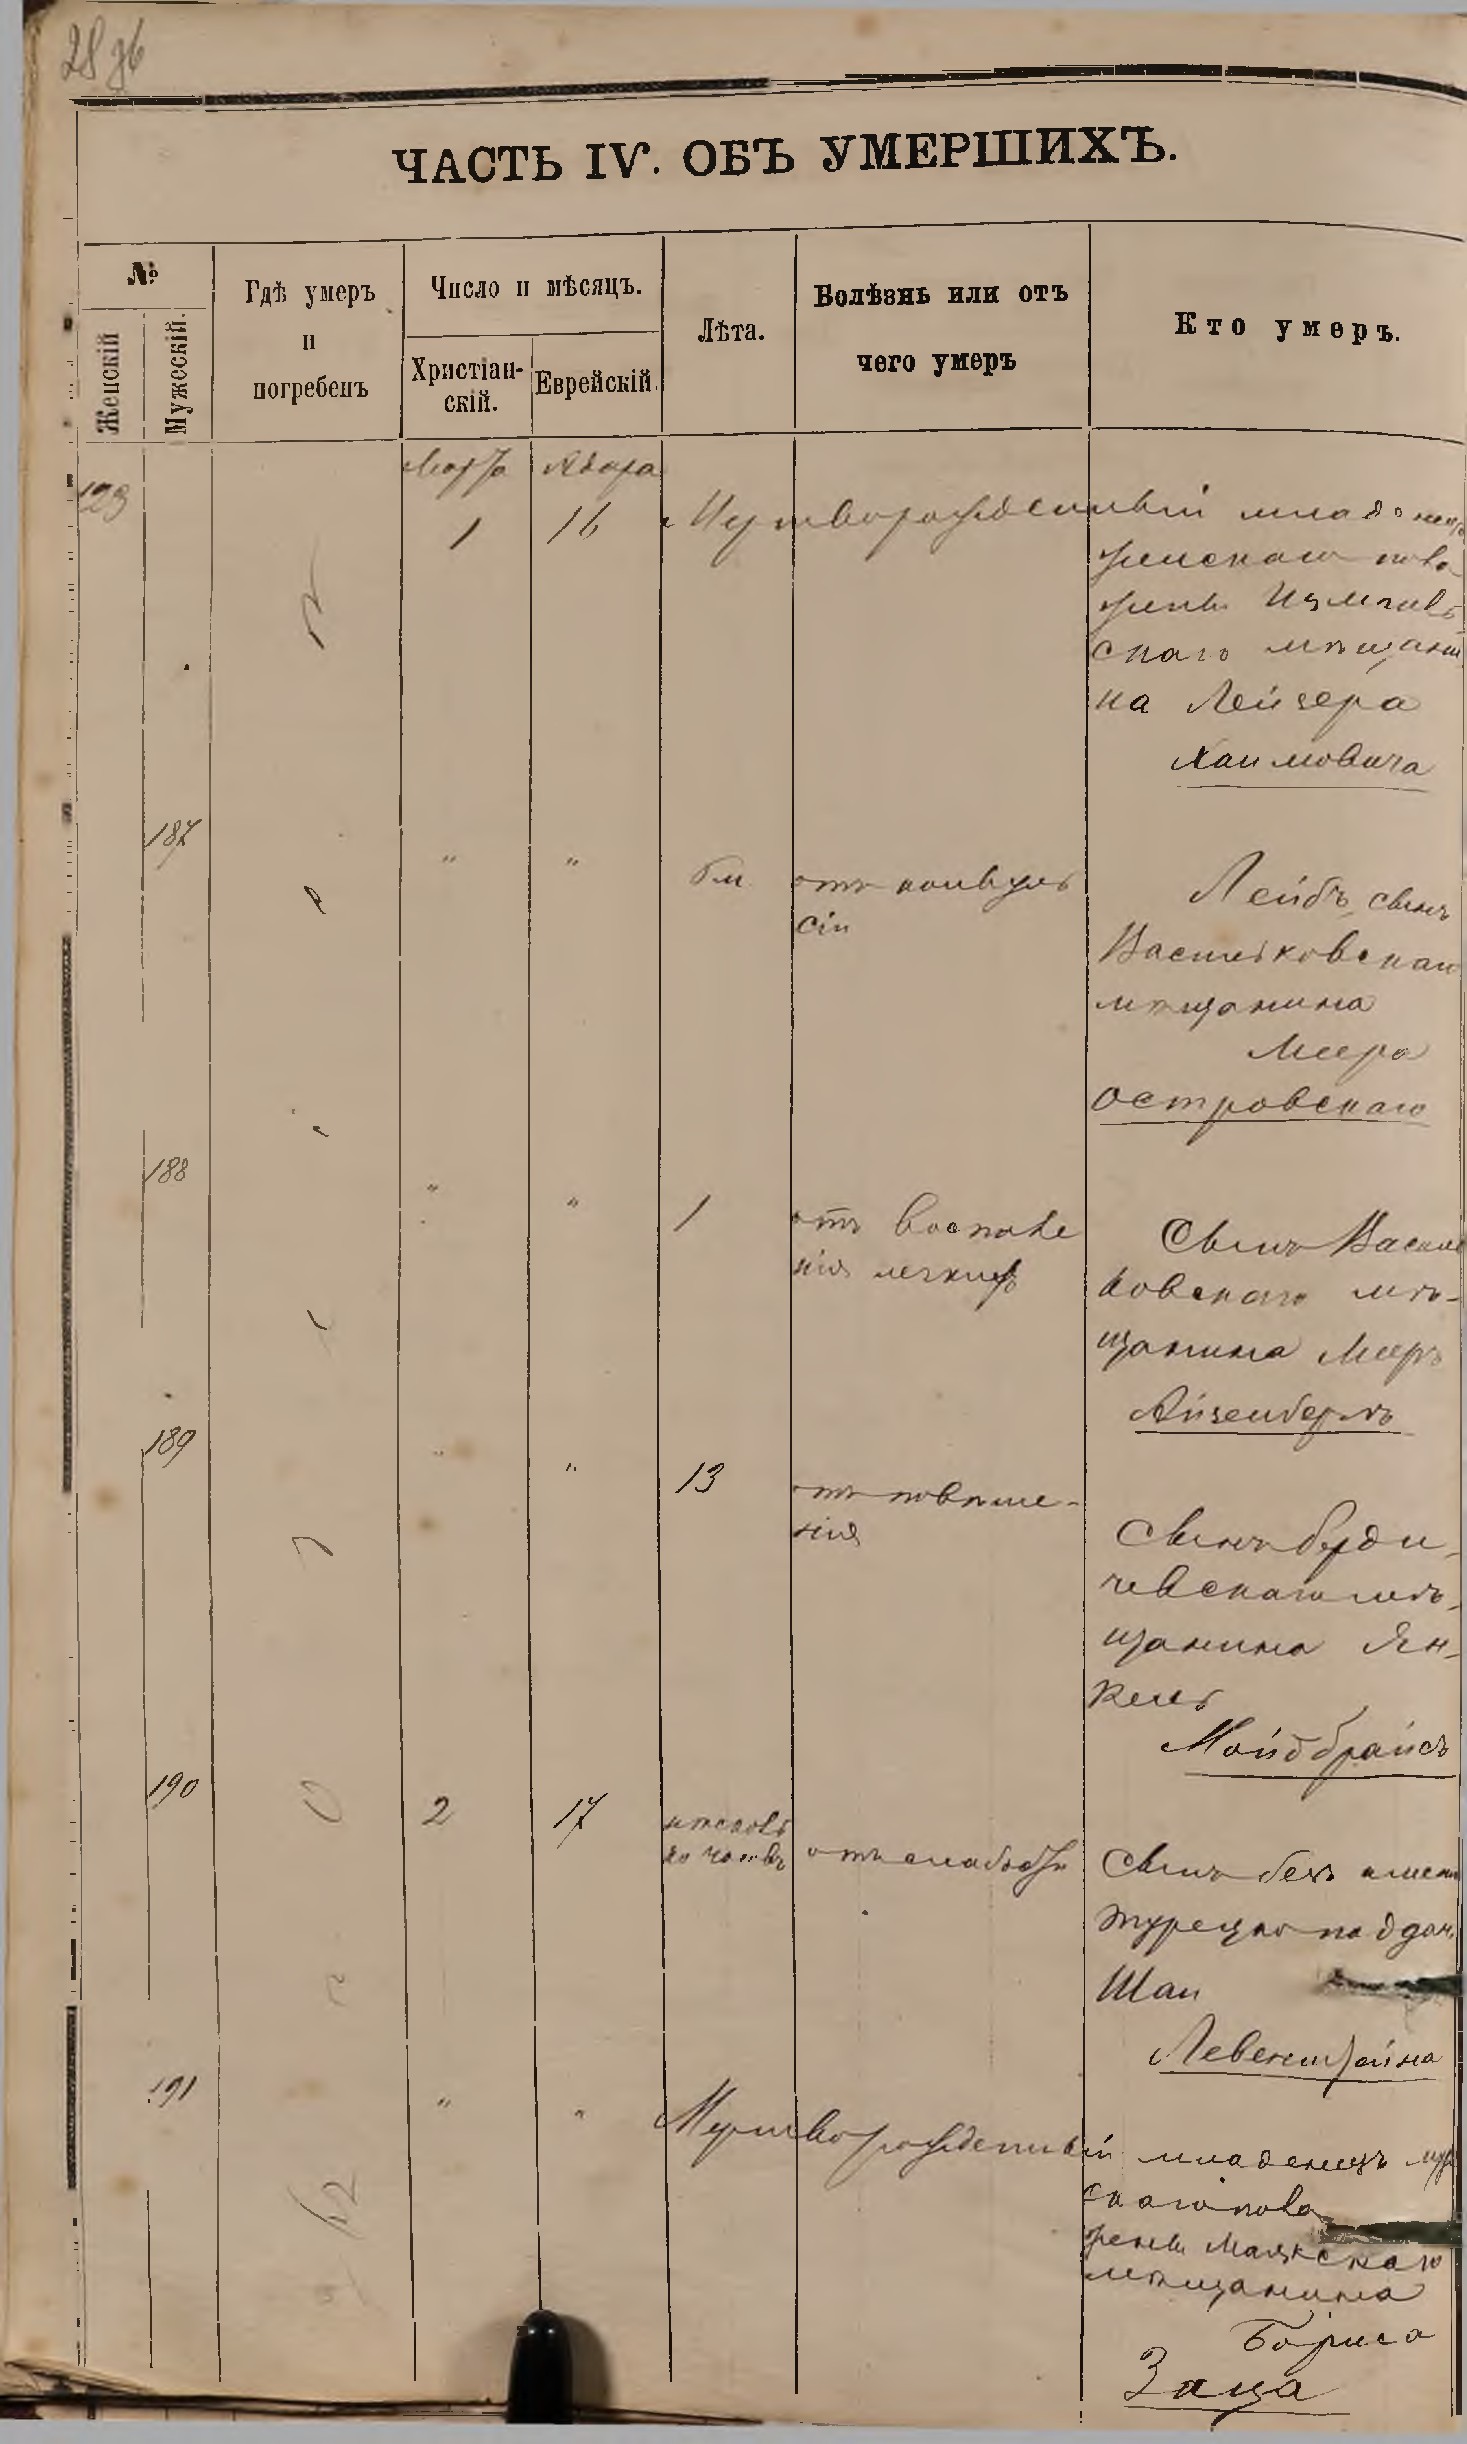 28 об
ЧАСТЬ IV. ОБЪ УМЕРШИХЪ.
№
Женскій
Мужескій.
Гдѣ умеръ
и
погребенъ
Число и мѣсяцъ.
Христіан-
скій.
Еврейскій.
Лѣта.
Болѣзнь или отъ
чего умеръ
Кто умеръ.
Марта Адара
123 1 16 Мертворожденный младенецъ
женскаго пола
жены Измаиль
скаго мѣщани
на Лейзера
Хаимовича
187 " " 6 м. отъ конвуль
сіи
Лейбъ, сынъ
Васильковскаго
мѣщанина
Меера
Островскаго
188 " " 1 отъ воспале
нія легкихъ
Сынъ Василь
ковскаго мѣ-
щанина Мееръ
Айзенбергъ
189 " " 13 отъ повѣше-
нія
Сынъ Берди-
чевскаго мѣ-
щанина Ян-
кель
Мойдбрайсъ
190 2 17
часовъ отъ слабости
Сынъ безъ имени
турецко поддан.
Шаи
Левенштейна
191 " " Мертворожденный младенецъ муж
скаго пола
жены Маякскаго
мѣщанина
Бориса
Заца